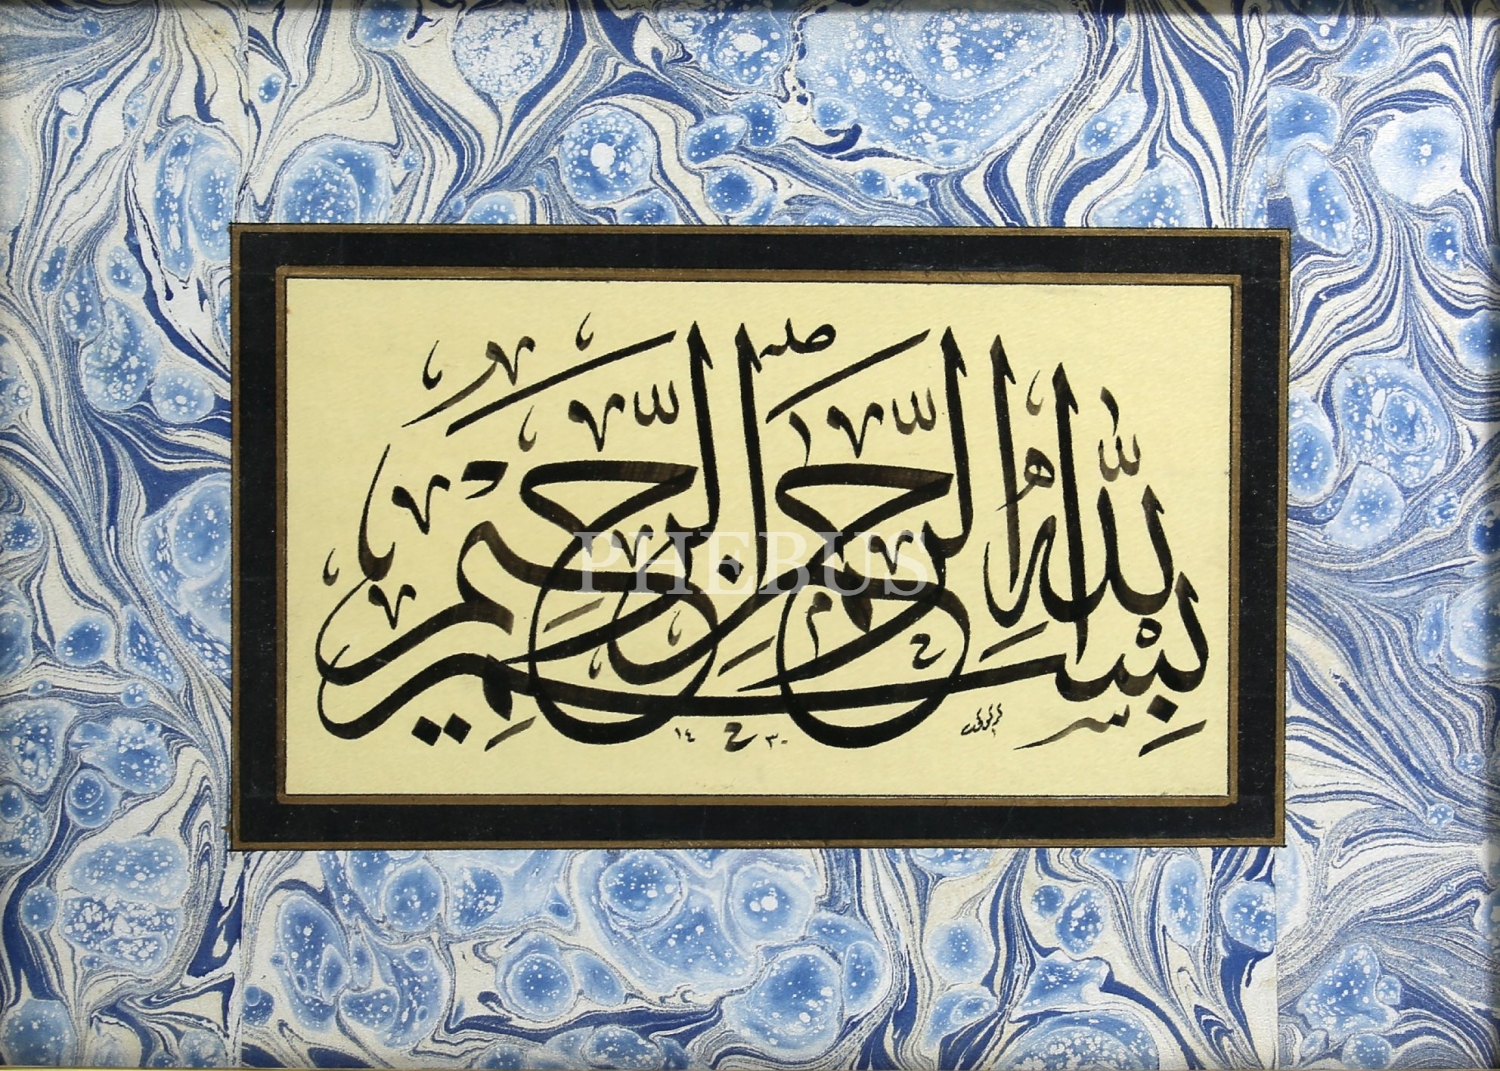 بِسْمِ اللّٰهِ الرَّحْمٰنِ الرَّحِيمِ
١٤ ٣٠
PHEBUS